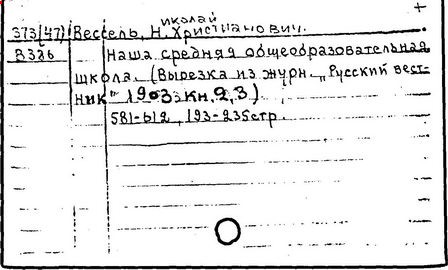 иколай
373(47) Вессель, Н. Христианович.
В326 Наша средняя общеобразовательная
школа. (Вырезка из журн. „Русский вест-
ник" 1903 кн. 2, 3)
581-612, 193-235стр.